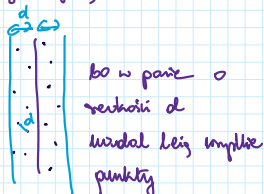 d
d
bo w pasie o
szerokości d
nadal leżą wszystkie
punkty